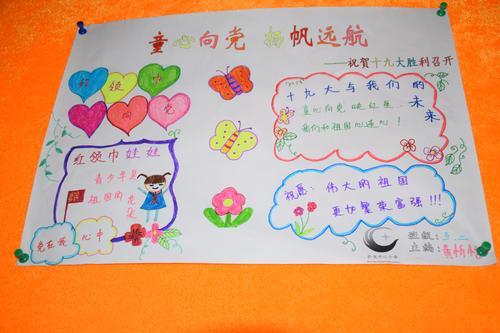 童心向党 扬帆远航
——祝贺十九大胜利召开
红领巾
心向党
十九大与我们的未来
童心向党映红星
我们和祖国心连心！
红领巾娃娃
青少年是
祖国的花朵
党在我心中
祝愿：伟大的祖国
更加繁荣富强!!!
班级：
主编：